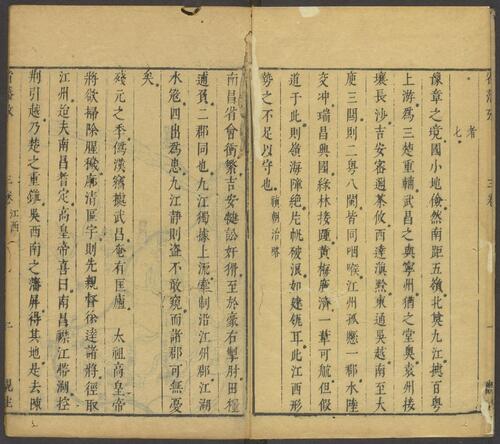 考
七
豫章之境國小地偹然南距五嶺北奠九江據百粤
上游爲三楚重輔武昌之與寧州猶之堂奥袁州接
壤長沙吉安審邇茶攸西達滇黔東通吳越南至大
庾三關則二粤八閩皆同咽喉江州孤懸一郡水陸
交冲瑞昌興國綠林接踵黄梅廣濟一葦可航但假
道于此則嶺海陣絶片帆破浪如建瓴耳此江西形
勢之不足以守也
南昌省會衝繁吉安健訟奸猾至於豪右掣肘田糧
逋負二郡同也九江獨據上流牽制沿江州郡江湖
水寇四出爲患九江靜則盗不敢窺而諸郡可無憂
矣
殘元之季僞漢竊據武昌奄有匡廬 太祖高皇帝
將欲掃除腥穢廓清區宇則先親督徐逹諸將徑取
江州迨夫南昌耆定高皇帝喜曰南昌襟江帶湖控
荆引越乃楚之重鎮吳西南之藩屏得其地是去陳
三卷
江西